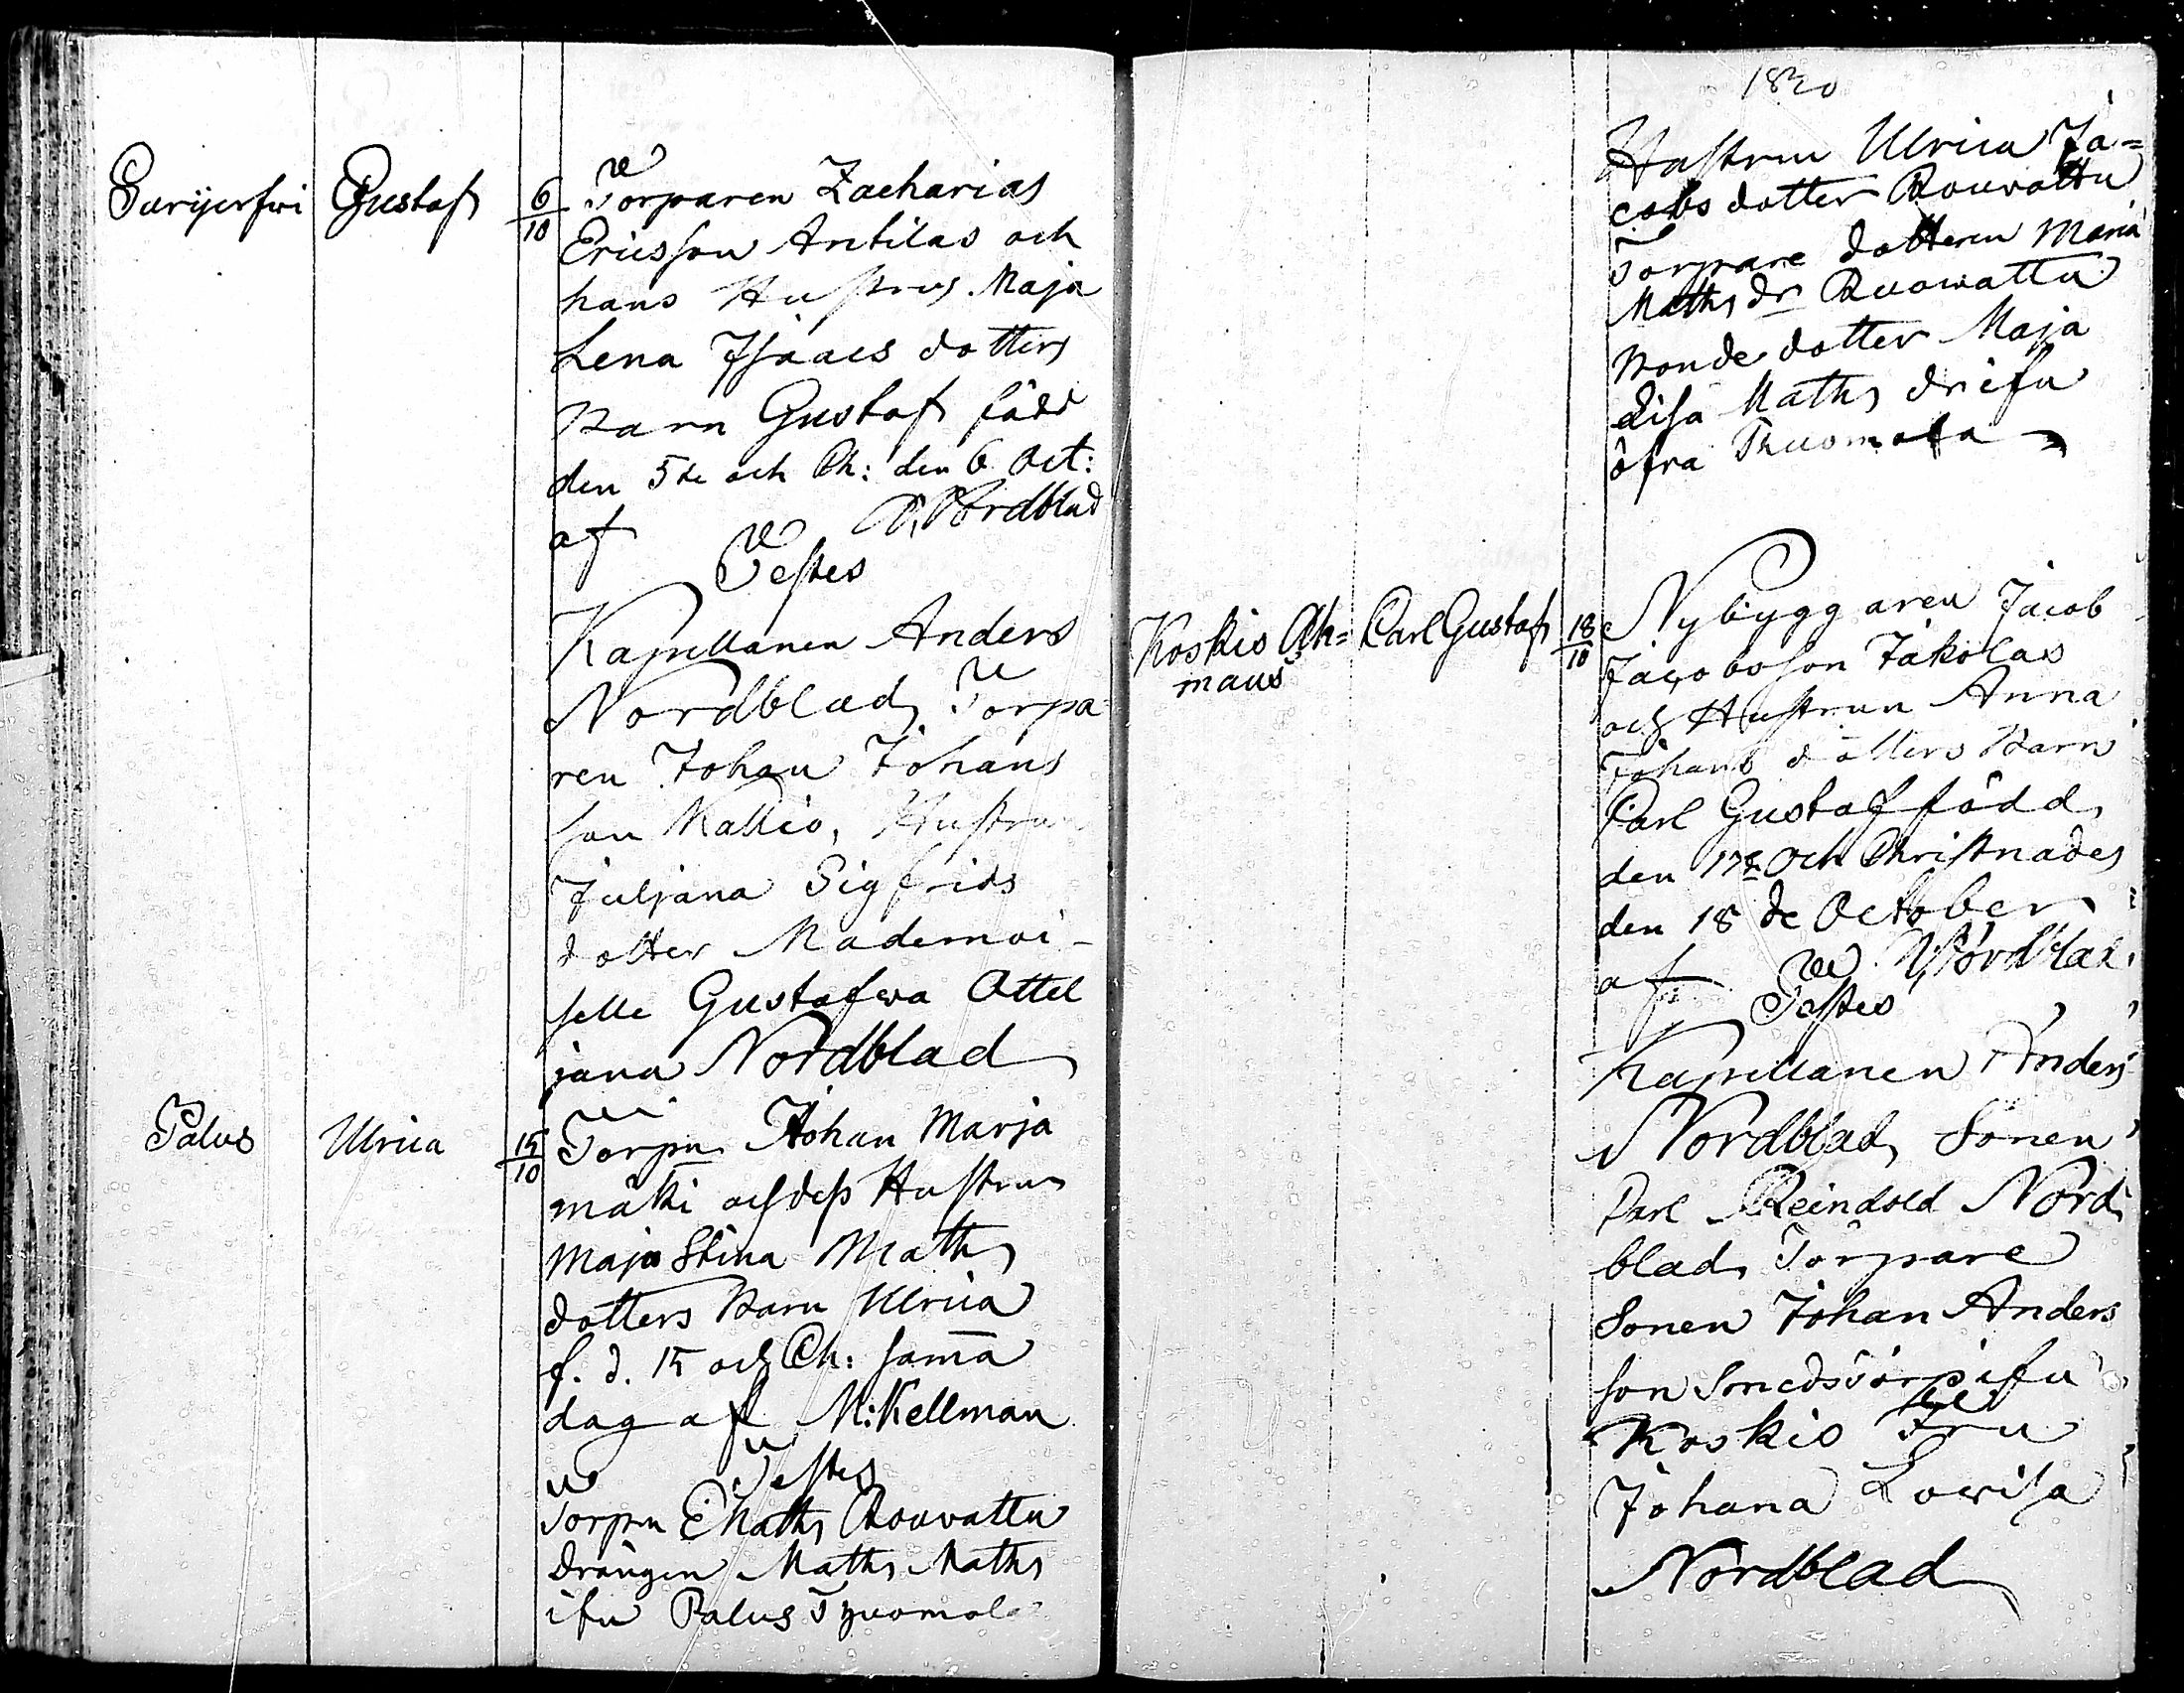 Surijerfwi Gustaf 6/10 Torparen Zacharias
Ericsson Antilas och
hans Hustrus Maja
Lena Isaacs dotters
Barn Gustaf född
den 5te och Ch: den 6 Oct:
af A, Nordblad
Testes
Kapellanen Anders
Nordblad, Torpa
ren Johan Johans
son Kallio, Hustrun
Juljana Sigfrids
dotter Mademoi-
selle Gustafwa Ottel
jana Nordblad
Palus Ulrica 15/10 Torpn Johan Marja
mäki och dess Hustrus
Maja Stina Maths
dotters Barn Ulrica
f. d. 15 och Ch: samma
dag af M: Kellman
Testes
Torpn Maths Rouvattu
Drängen Maths Maths
ifrn Palus Tyuomola
1820
Hustrun Ulrica Ja=
cobs dotter Rouvattu
Torpare dotteren Maria
Maths dr Ruowattu
Bonde dotter Maja
Lisa Maths dr ifrn
öfra Thuomala
Koskis Ah= Carl Gustaf 18/10 Nybyggaren Jacob
maus
Jacobsson Jakolas
och Hustrun Anna
Johans dotters Barn
Carl Gustaf född
den 17e Och Christnades
den 18 de October
af Nordblad
Testes
Kapellanen Anders
Nordblad, Sonen
Carl Reindold Nord
blad, Torpare
Sonen Johan Anders
son Smedstorp ifrn
Koskis Fru
Johana Lovisa
Nordblad